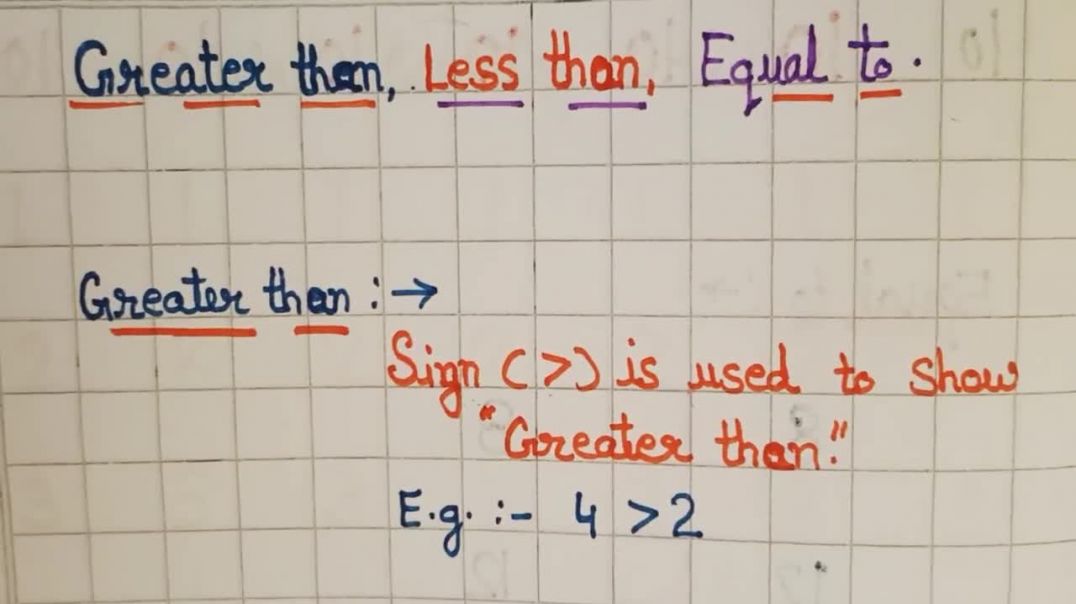 Greater than, Less than, Equal to.
Greater than :→
Sign (>) is used to show
"Greater than."
E.g. :- 4 > 2